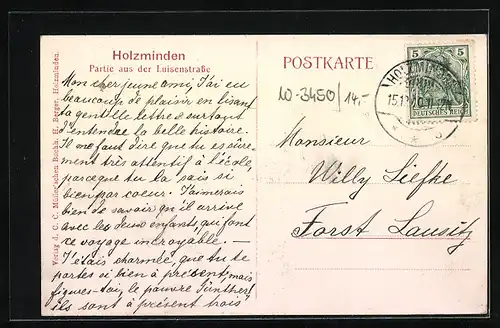 Holzminden
Partie aus der Luisenstraße
Mon cher jeune ami, J'ai eu
beaucoup de plaisir en lisant
ta gentille lettre et surtout
d'entendre la belle histoire.
Il me faut dire que tu es sûre-
ment très attentif à l'école,
parceque tu la sais si
bien par coeur. J'aimerais
bien de savoir qu'il arrive
avec les deux enfants, qui font
ce voyage incroyable. —
J'étais charmée, que tu te
portes si bien à présent; mais
figures-toi, le pauvre Günther!
ils sont à présent trois
Verlag d. C. C. Müller'schen Buchh. H. Berger, Holzminden.
POSTKARTE
10-3450/14.-
5 5
DEUTSCHES REICH
HOLZMINDEN
15.12.10.11-12V
Monsieur
Willy Liefke
Forst Lausitz